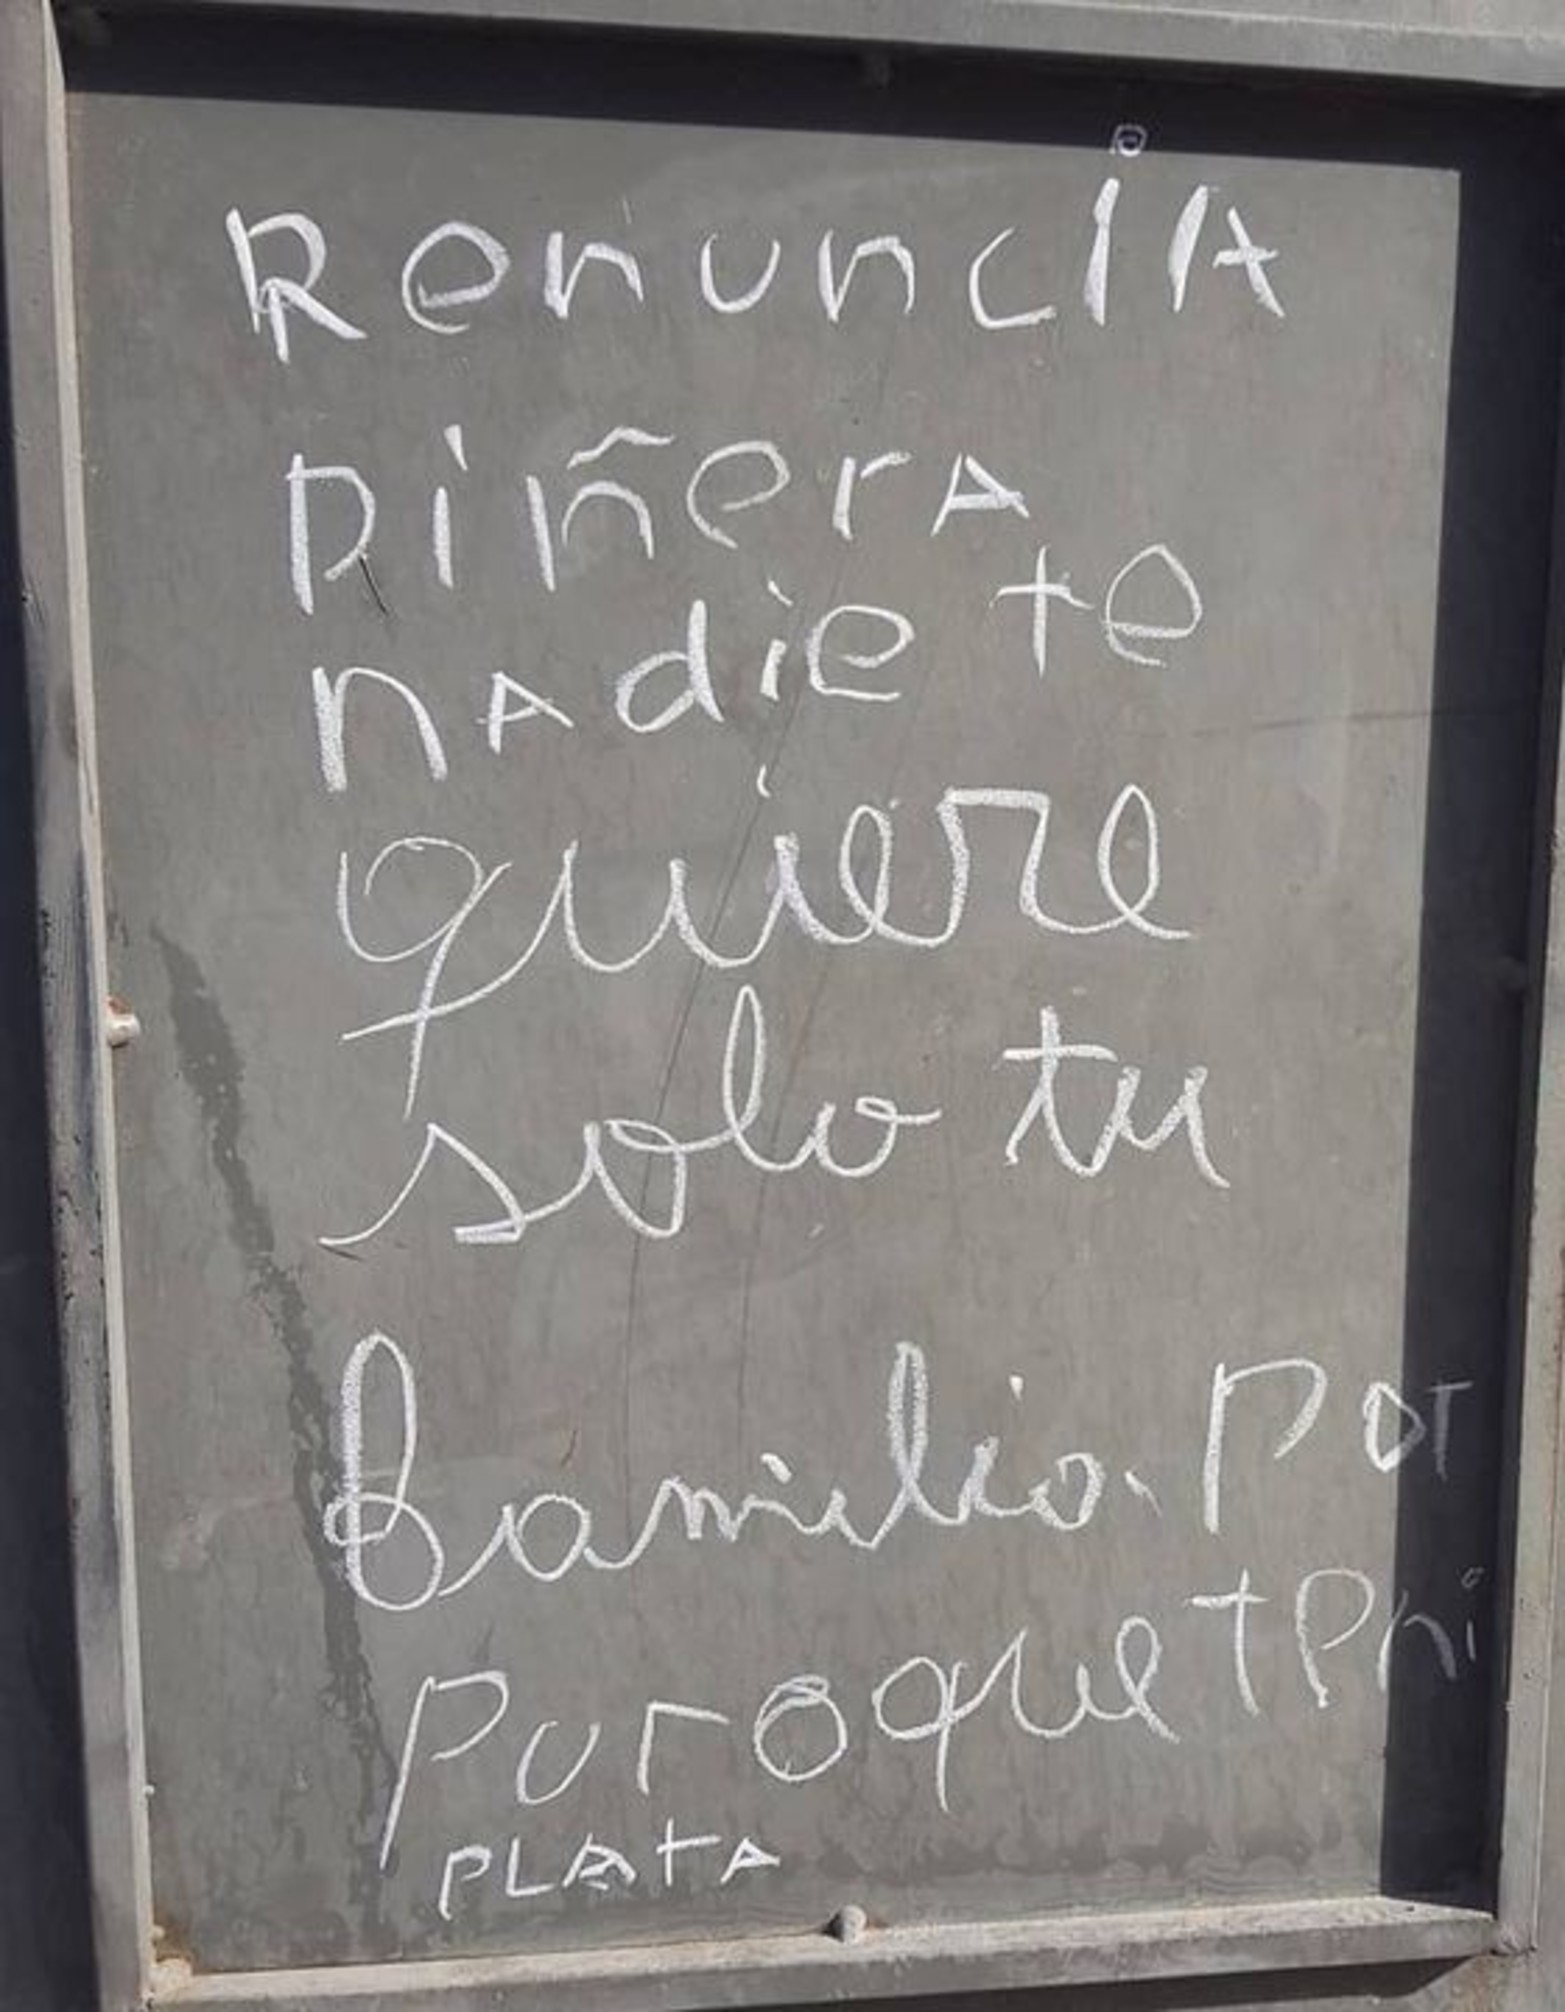 Renuncia
Piñera
nadie te
quiere
solo tu
familia. Por
puro que teni
PLATA